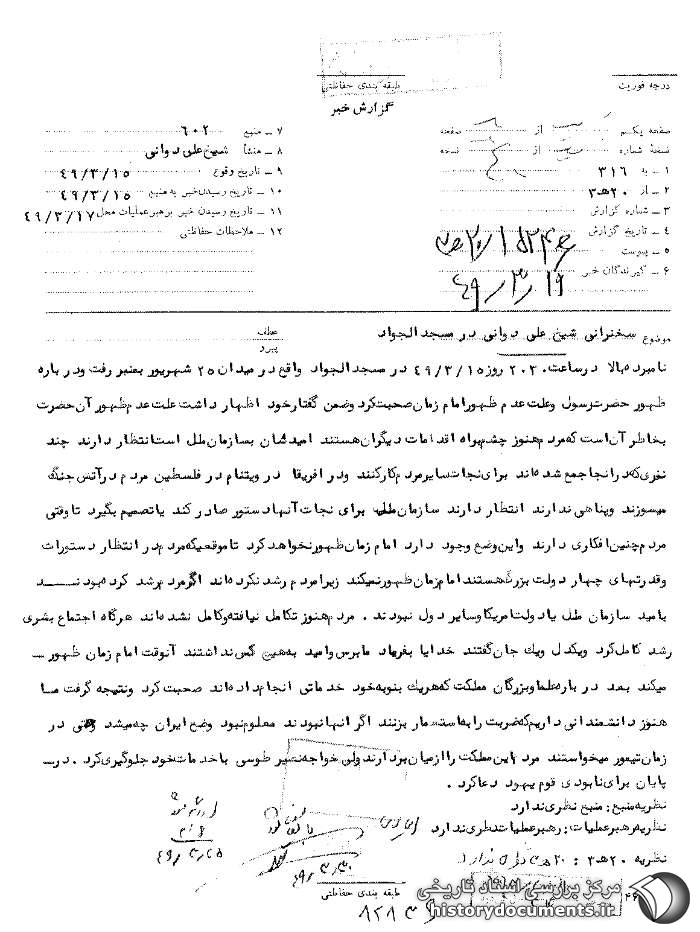 درجه فوریت
طبقه بندی حفاظتی
گزارش خبر
صفحه یکم از صفحه
نسخه شماره از نسخه
۱ ـ به ۳۱۶
۲ ـ از ۲۰ه۳
۳ ـ شماره گزارش
۴ ـ تاریخ گزارش
۵ ـ پیوست
۶ ـ گیرندگان خبر
۴۹/۳/۱۹
۷ ـ منبع ۶۰۲
۸ ـ منشأ شیخ علی دوانی
۹ ـ تاریخ وقوع ۴۹/۳/۱۵
۱۰ ـ تاریخ رسیدن خبر به منبع ۴۹/۳/۱۵
۱۱ ـ تاریخ رسیدن خبر برهبر عملیات محل ۴۹/۳/۱۷
۱۲ ـ ملاحظات حفاظتی
موضوع سخنرانی شیخ علی دوانی در مسجد الجواد
عطف
پیرو
نامبرده بالا در ساعت ۲۰۳۰ روز ۴۹/۳/۱۵ در مسجد الجواد واقع در میدان ۲۵ شهریور بمنبر رفت و درباره
ظهور حضرت رسول و علت عدم ظهور امام زمان صحبت کرد و ضمن گفتار خود اظهار داشت علت عدم ظهور آن حضرت
بخاطر آن است که مردم هنوز چشم براه اقدامات دیگران هستند امیدشان بسازمان ملل است انتظار دارند چند
نفری که در آنجا جمع شده اند برای نجات سایر مردم کار کنند و در افریقا در ویتنام در فلسطین مردم در آتش جنگ
میسوزند و پناهی ندارند انتظار دارند سازمان ملل برای نجات آنها دستور صادر کند یا تصمیم بگیرد تا وقتی
مردم چنین افکاری دارند و این وضع وجود دارد امام زمان ظهور نخواهد کرد تا موقعیکه مردم در انتظار دستورات
وقدرتهای چهار دولت بزرگ هستند امام زمان ظهور نمیکند زیرا مردم رشد نکرده اند اگر مردم رشد کرده بودند
بامید سازمان ملل یا دولت امریکا و سایر دول نبودند . مردم هنوز تکامل نیافته و کامل نشده اند هرگاه اجتماع بشری
رشد کامل کرد و یکدل و یک جان گفتند خدایا بفریاد ما برس و امید به هیچ کس نداشتند آنوقت امام زمان ظهور
میکند بعد در باره علما و بزرگان مملکت که هریک بنوبه خود خدماتی انجام داده اند صحبت کرد و نتیجه گرفت ما
هنوز دانشمندانی داریم که ضربت را به استعمار بزنند اگر اینها نبودند معلوم نبود وضع ایران چه میشد وقتی در
زمان تیمور میخواستند مردم این مملکت را از میان بردارند ولی خواجه نصیر طوسی با خدمات خود جلوگیری کرد . در
پایان برای نابودی قوم یهود دعا کرد .
نظریه منبع : منبع نظری ندارد
نظریه رهبر عملیات : رهبر عملیات نظری ندارد
نظریه ۲۰ه۳ : ۲۰ه۳ نظری ندارد
طبقه بندی حفاظتی
مرکز بررسی اسناد تاریخی
historydocuments.ir